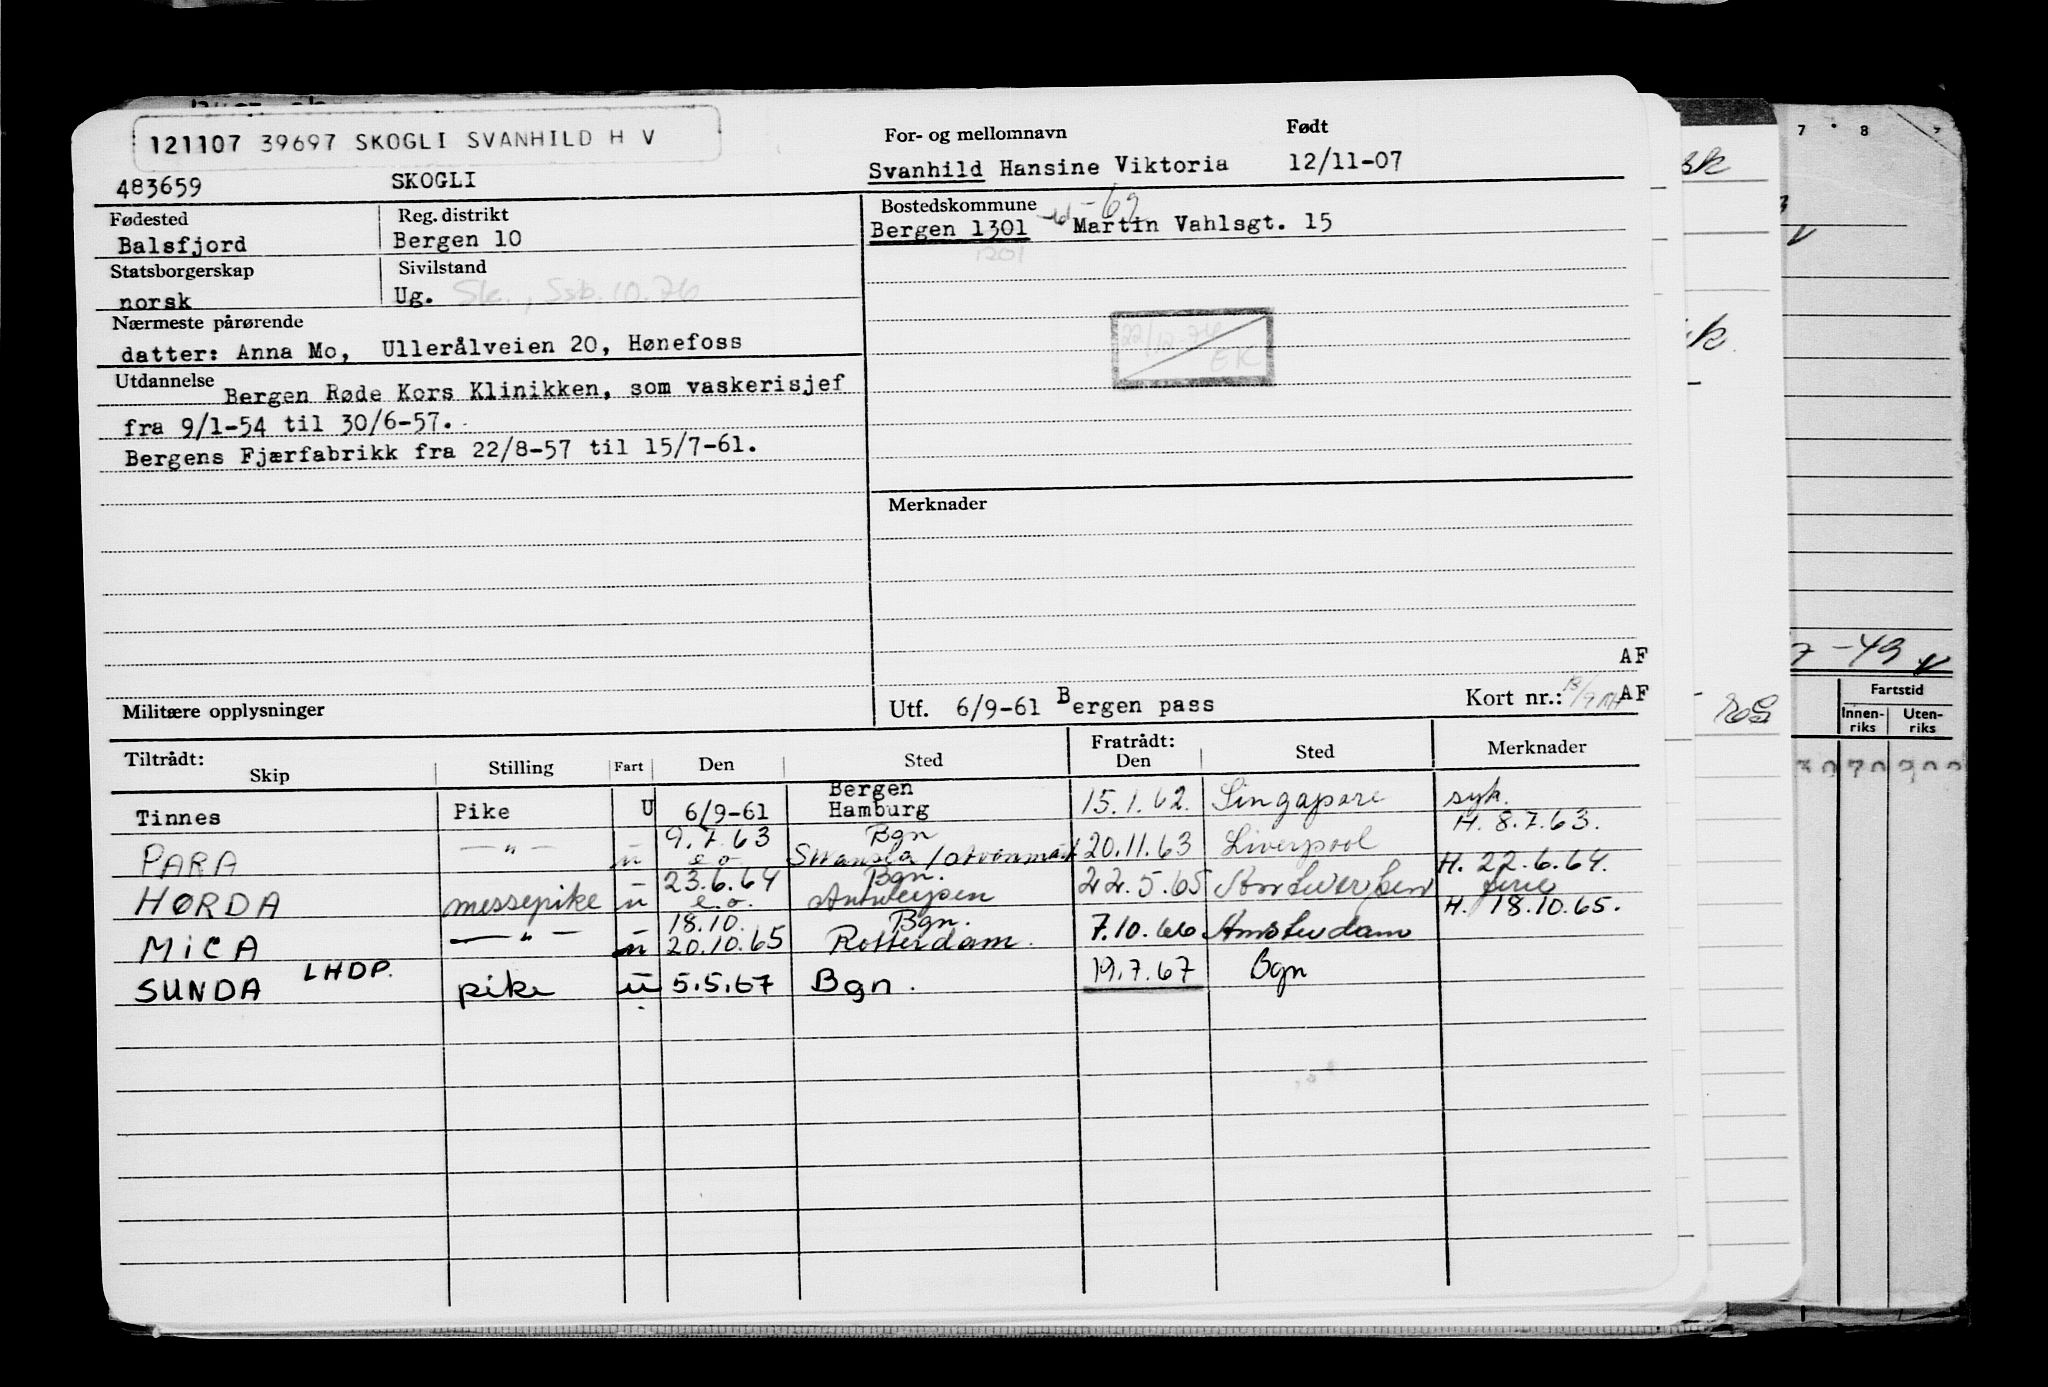 121107 39697 SKOGLI SVANHILD H V
For- og mellomnavn Født
483659 SKOGLI Svanhild Hansine Viktoria 12/11-07
Fødested Reg. distrikt Bostedskommune
Balsfjord Bergen 10 Bergen 1301 -69 Martin Vahlsgt. 15
1201
Statsborgerskap Sivilstand
norsk Ug. Sk., Ssb. 10.76
Nærmeste pårørende
datter: Anna Mo, Ullerålveien 20, Hønefoss
22/12-76
EK
Utdannelse Bergen Røde Kors Klinikken, som vaskerisjef
fra 9/1-54 til 30/6-57.
Bergens Fjærfabrikk fra 22/8-57 til 15/7-61.
Merknader
AF
Militære opplysninger Utf. 6/9-61 Bergen pass Kort nr.: AF
Tiltrådt: Fratrådt:
Skip Stilling Fart Den Sted Den Sted Merknader
Bergen
Tinnes Pike U 6/9-61 Hamburg 15.1.62. Singapore syk.
9.7.63 Bgn H. 8.7.63.
PARA — " — u e.o. Swansea / 20.11.63 Liverpool
23.6.64 Bgn. H. 22.6.64.
HØRDA messepike u e.o. Antwerpen 22.5.65 Antwerpen ferie
18.10. Bgn. H. 18.10.65.
MICA — " — u 20.10.65 Rotterdam. 7.10.66 Amsterdam
SUNDA LHDP. pike u 5.5.67 Bgn. 19.7.67 Bgn
7 8
sk
7 -49
Fartstid
Innen-riks Uten-riks